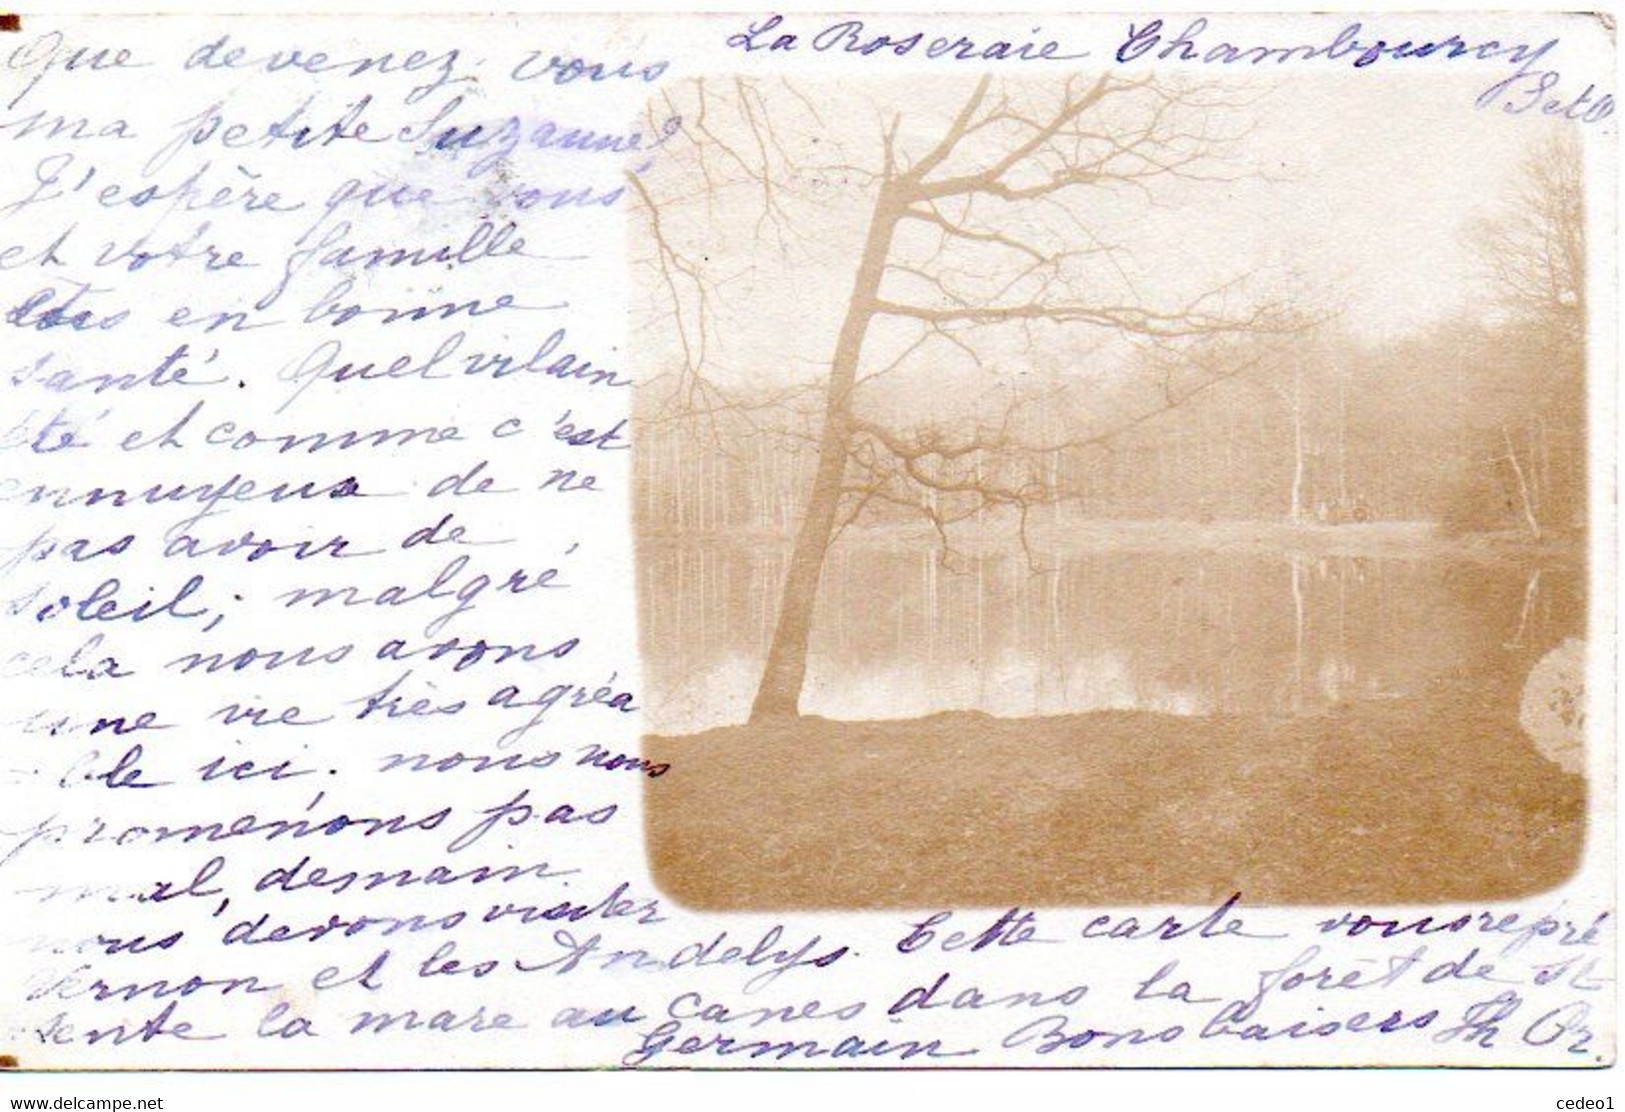 La Roseraie Chambourcy
S et O.
Que devenez-vous
ma petite Suzanne?
J'espère que vous
et votre famille
êtes en bonne
santé. Quel vilain
été et comme c'est
ennuyeux de ne
pas avoir de
soleil; malgré
cela nous avons
une vie très agréa
-ble ici. nous nous
promenons pas
mal, demain
nous devons visiter
Vernon et les Andelys. Cette carte vous repré
sente la mare au canes dans la forêt de St
Germain Bons baisers Th Or.
www.delcampe.net
cedeo1